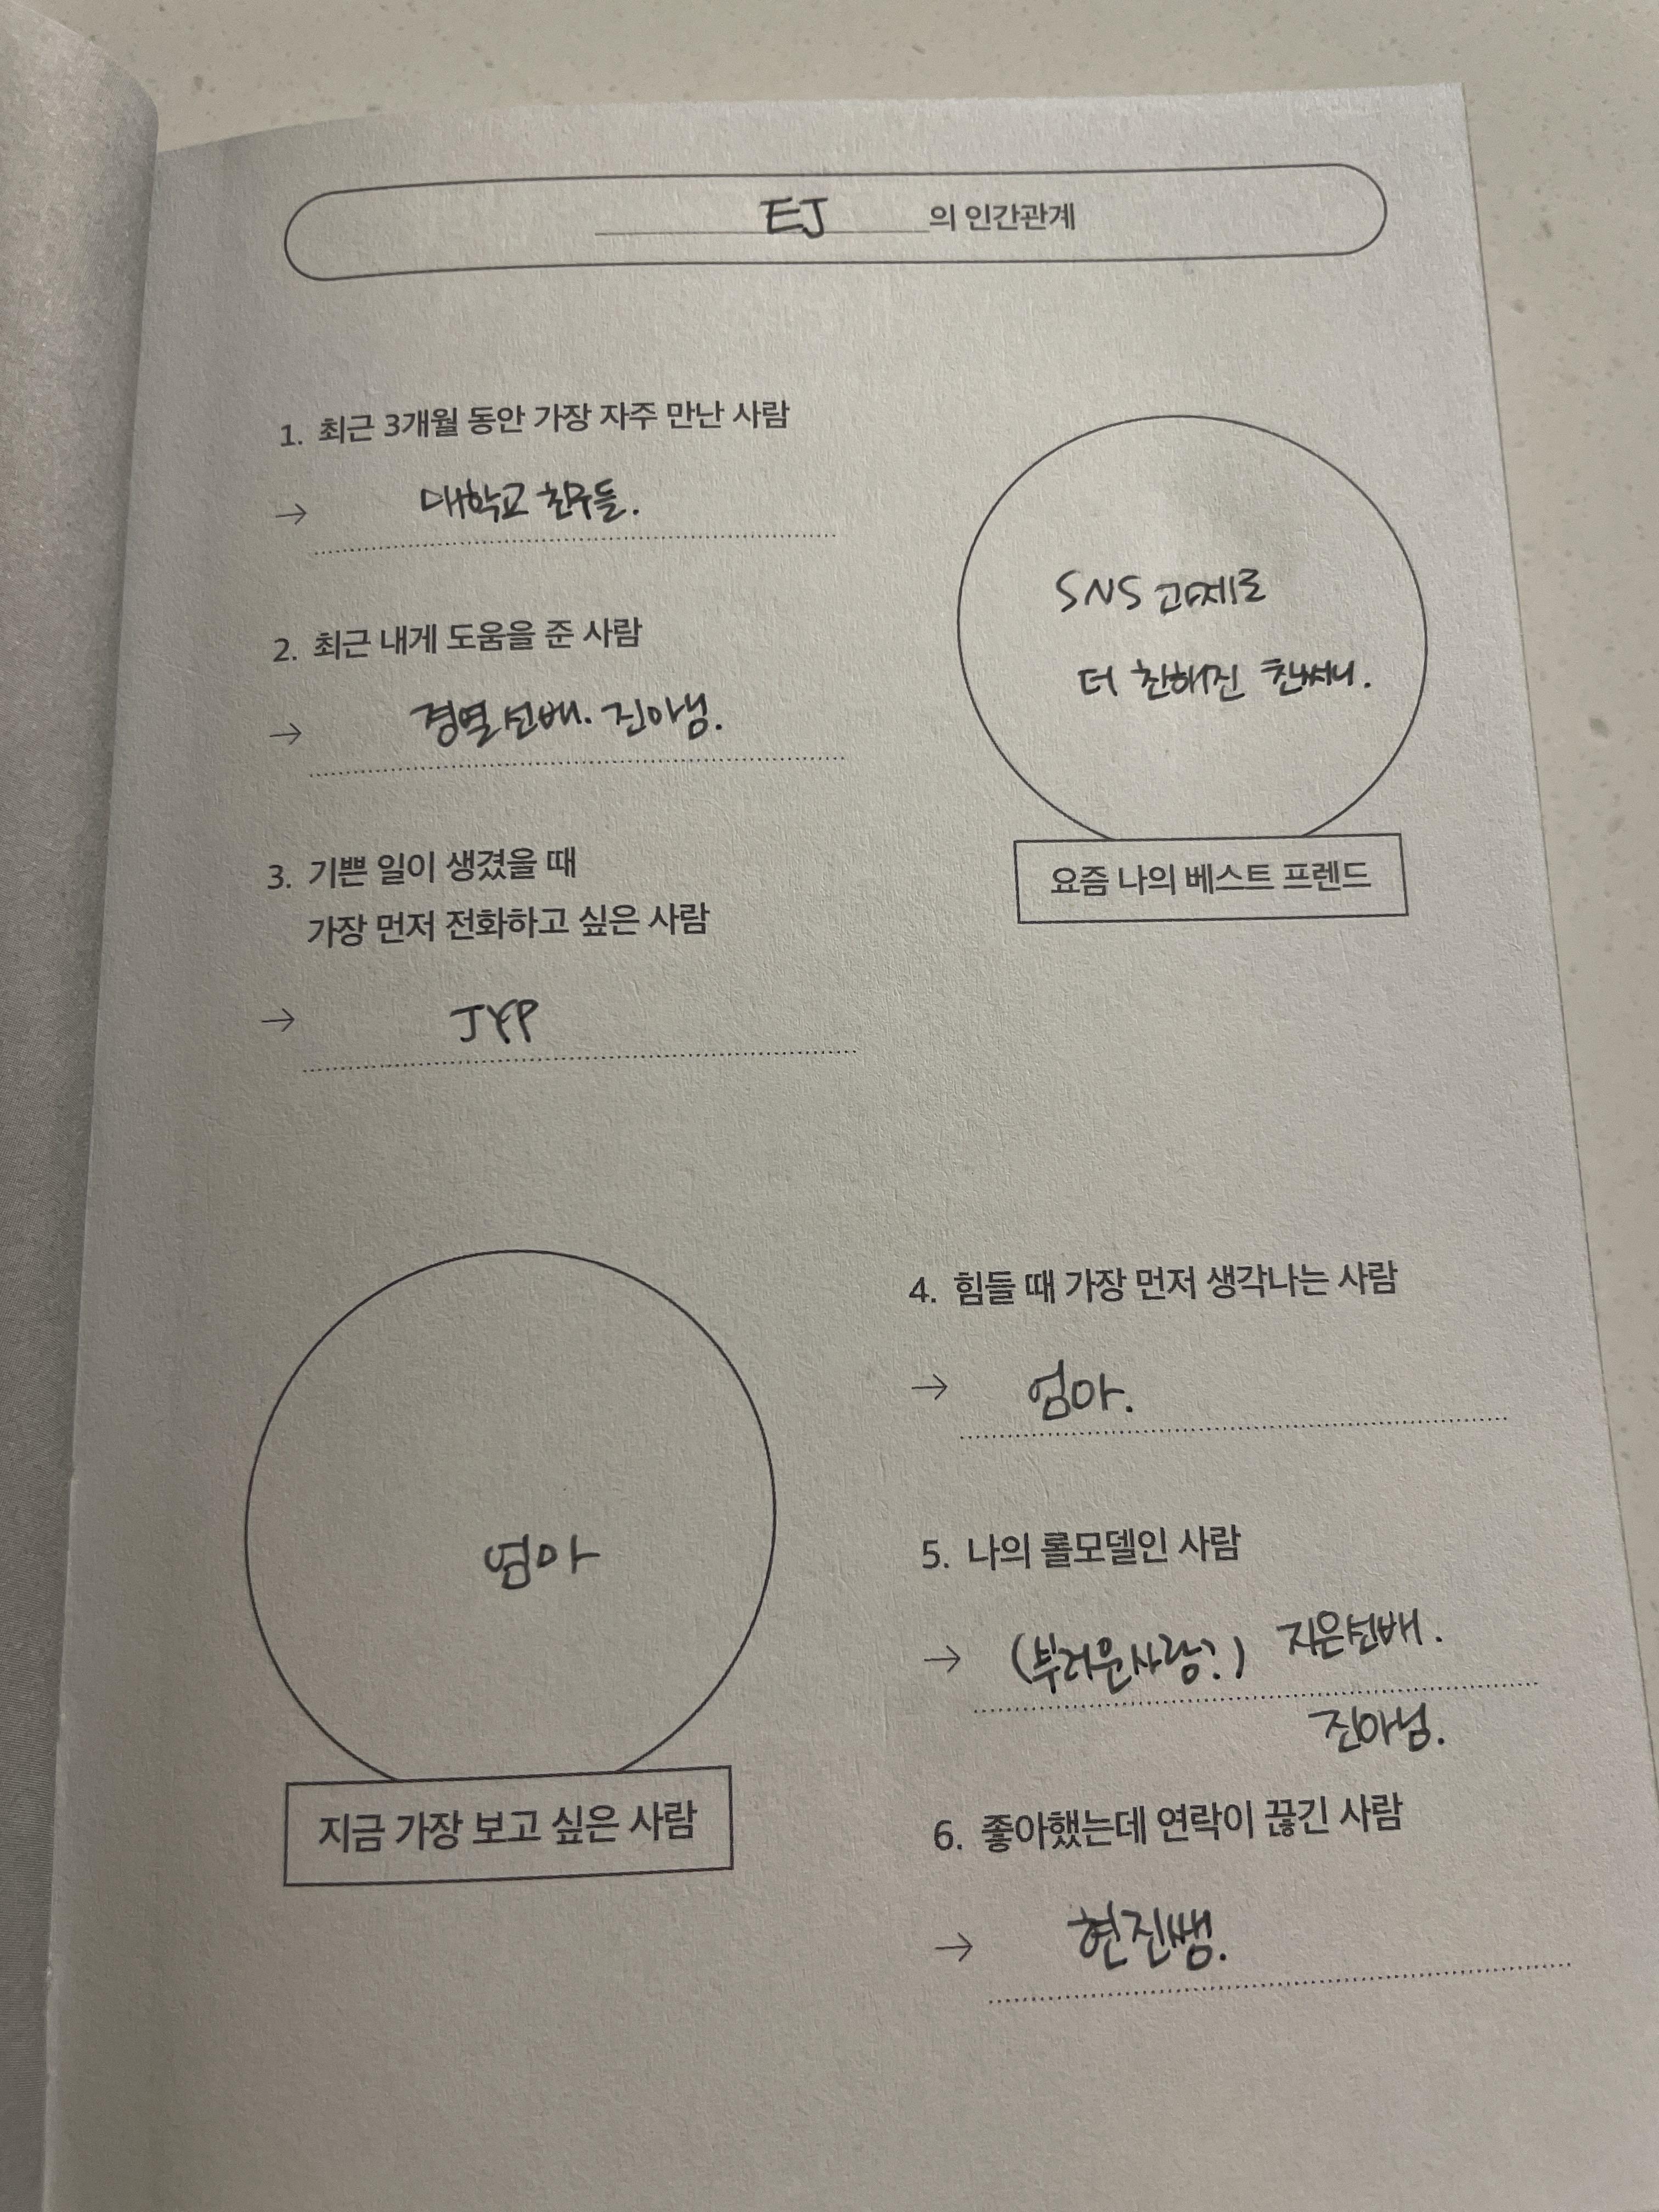 EJ 의 인간관계
1. 최근 3개월 동안 가장 자주 만난 사람
→ 대학교 친구들.
2. 최근 내게 도움을 준 사람
→ 경열선배. 진아님.
3. 기쁜 일이 생겼을 때
가장 먼저 전화하고 싶은 사람
→ JYP
SNS 과제로
더 친해진
요즘 나의 베스트 프렌드
엄마
지금 가장 보고 싶은 사람
4. 힘들 때 가장 먼저 생각나는 사람
→ 엄마.
5. 나의 롤모델인 사람
→ (부러운사람?) 지은선배.
진아님.
6. 좋아했는데 연락이 끊긴 사람
→ 현진쌤.